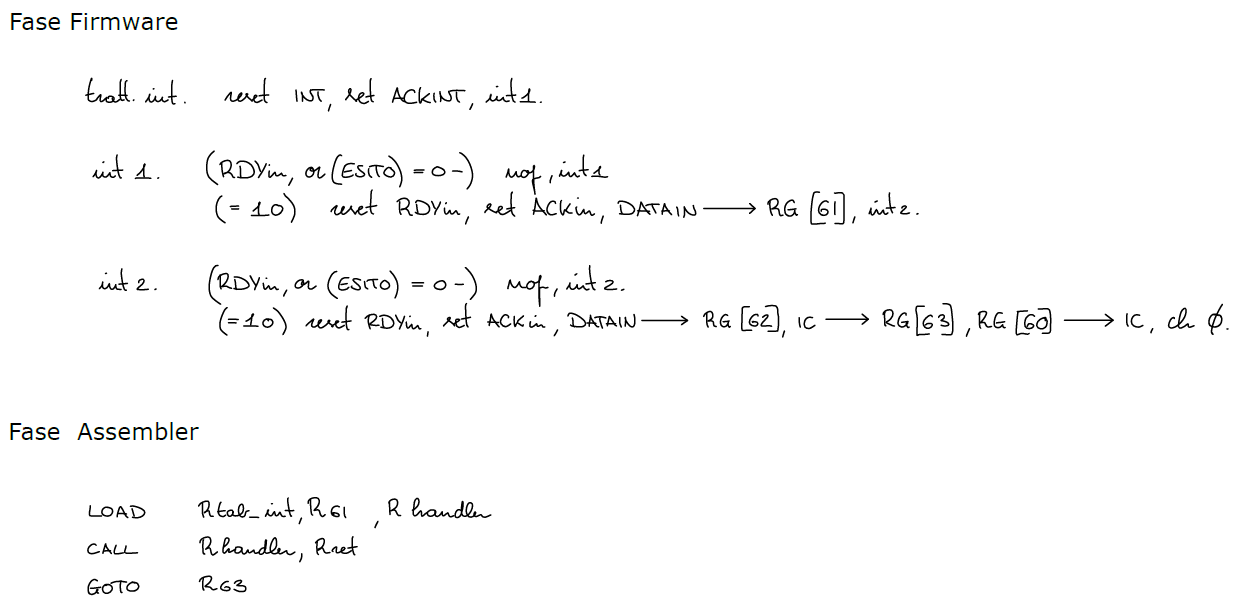 Fase Firmware
tratt. int. reset INT, set ACKINT, int1.
int 1. (RDYin, or (ESITO) = 0-) nop, int1
(= 10) reset RDYin, set ACKin, DATAIN ⟶ RG [61], int2.
int 2. (RDYin, or (ESITO) = 0-) nop, int2.
(=10) reset RDYin, set ACKin, DATAIN ⟶ RG [62], IC ⟶ RG[63], RG [60] ⟶ IC, ch 0.
Fase Assembler
LOAD Rtab_int, R61, Rhandler
CALL Rhandler, Rret
GOTO R63